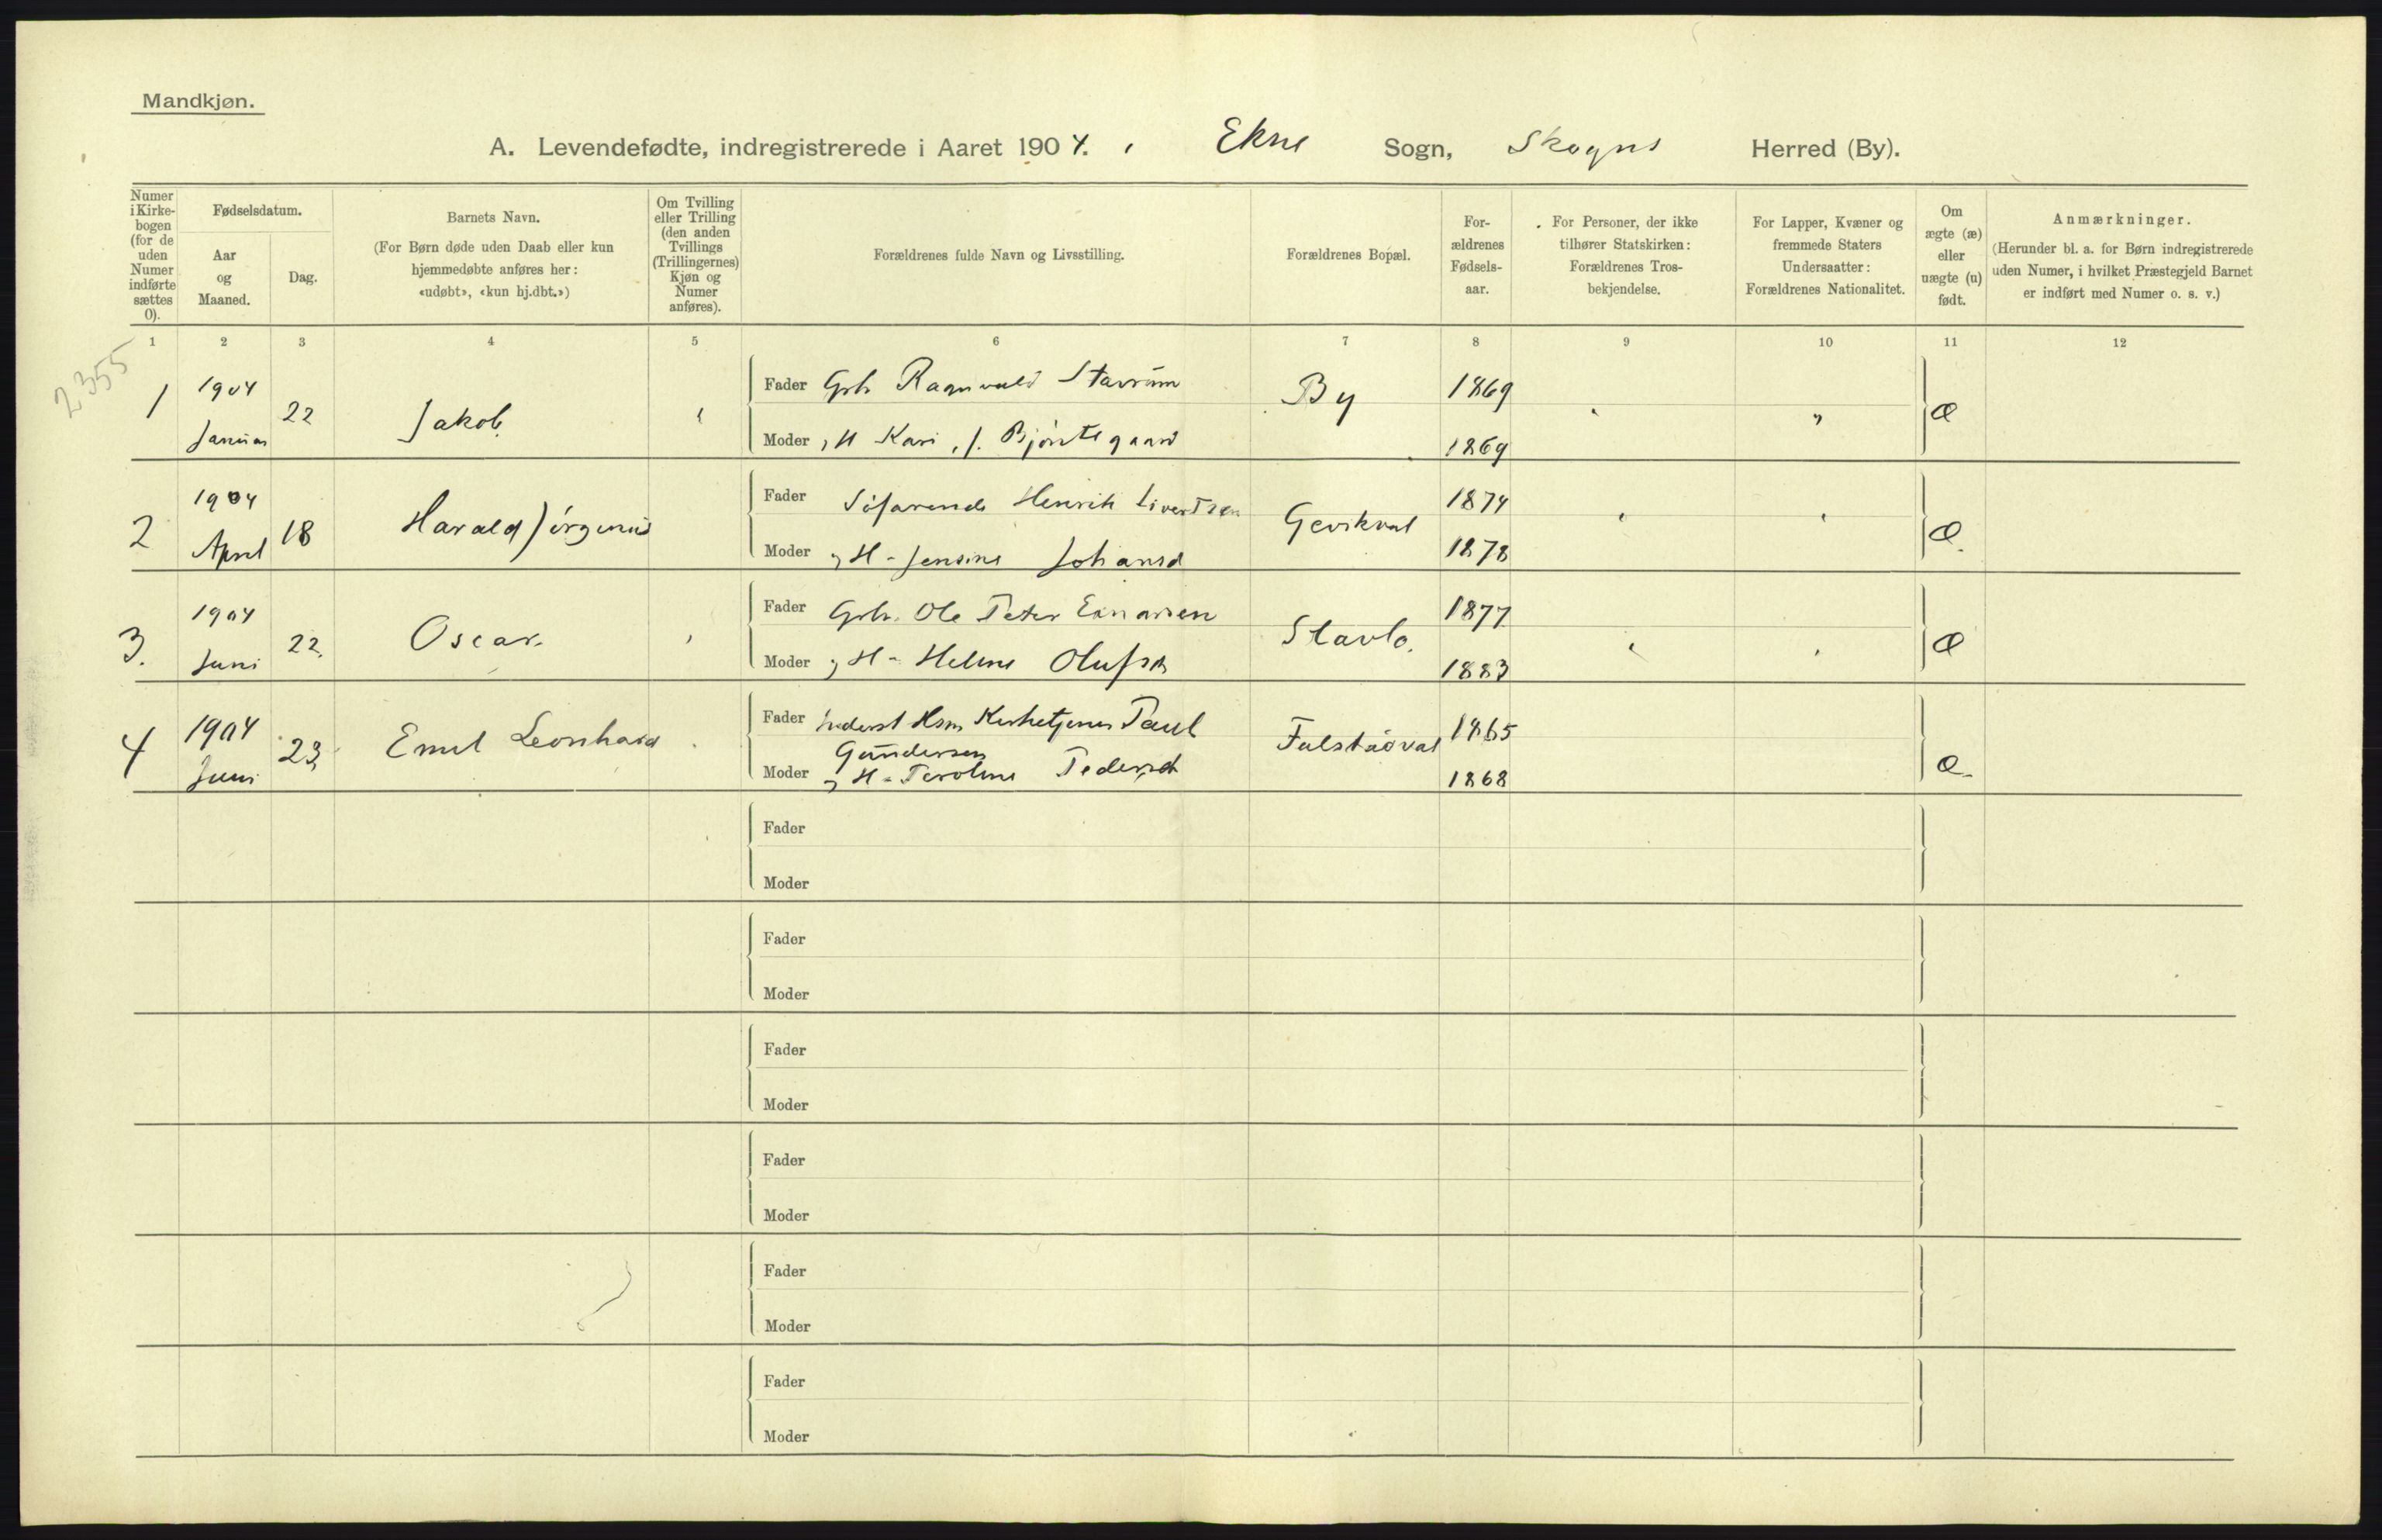 Mandkjøn.
A. Levendefødte, indregistrerede i Aaret 1904. i Ekne Sogn, Skogns Herred (By).
Numer i Kirke-bogen (for de uden Numer indførte sættes 0).
Fødselsdatum.
Aar og Maaned.
Dag.
Barnets Navn.
(For Børn døde uden Daab eller kun hjemmedøbte anføres her: «udøbt», «kun hj.dbt.»)
Om Tvilling eller Trilling (den anden Tvillings (Trillingernes) Kjøn og Numer anføres).
Forældrenes fulde Navn og Livsstilling.
Forældrenes Bopæl.
For-ældrenes Fødsels-aar.
For Personer, der ikke tilhører Statskirken: Forældrenes Tros-bekjendelse.
For Lapper, Kvæner og fremmede Staters Undersaatter: Forældrenes Nationalitet.
Om ægte (æ) eller uægte (u) født.
Anmærkninger.
(Herunder bl. a. for Børn indregistrerede uden Numer, i hvilket Præstegjeld Barnet er indført med Numer o. s. v.)
1 2 3 4 5 6 7 8 9 10 11 12
2355
1 1904 Januar 22 Jakob " Fader Gbr Ragnvald Stavrum By 1869 " " æ
Moder , H Kari , f. Bjørstegaard 1869
2 1904 April 18 Harald Jørgenius Fader Søfarende Henrik Sivertsen 1874 " " æ.
Moder , H - Jensine Johansd 1878
3. 1904 Juni 22. Oscar. " Fader Gbr. Ole Peter Einarsen Stavlo. 1877 " " æ
Moder , H - Helene Olufsd 1883
4 1904 Juni 23, Emil Leonhard Fader Inderst Hsm Kirketjener Paul Gundersen Falstadval 1865 æ.
Moder , H - Pedersd 1868
Fader
Moder
Fader
Moder
Fader
Moder
Fader
Moder
Fader
Moder
Fader
Moder